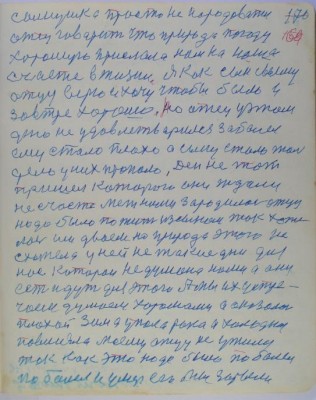 176
солнушко просто не нарадовати
отец говорит что природа погоду
хорошую прислала нам на наша
счастье в жизни, Я как сын своему
отцу верю и хочу чтобы было и
завтре хорошо, но отец этим
дено не удовлетворился забалел
ему стало плохо а сыну стало жал
дел у них пропало, Ден не тот
пришел которого они ждали
несчаста меж ними зародилос отцу
надо было пожит и сыном так хоте
лос им двоем но природа этого не
схотела у ней не такие дни для
нас которая не думала нами а они
сегодня идут для этого А мы их устре
чаем думаем хорошими а оказался
плохой Зима упокарока и холодна
повлияла моему отцу не ужилу
так как это надо было по балел
по балел и умер его мы зарыли